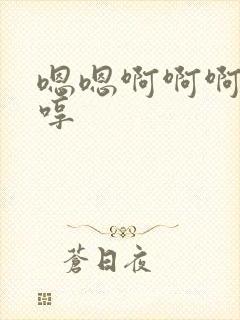 嗯嗯啊啊啊
哼
蒼日夜